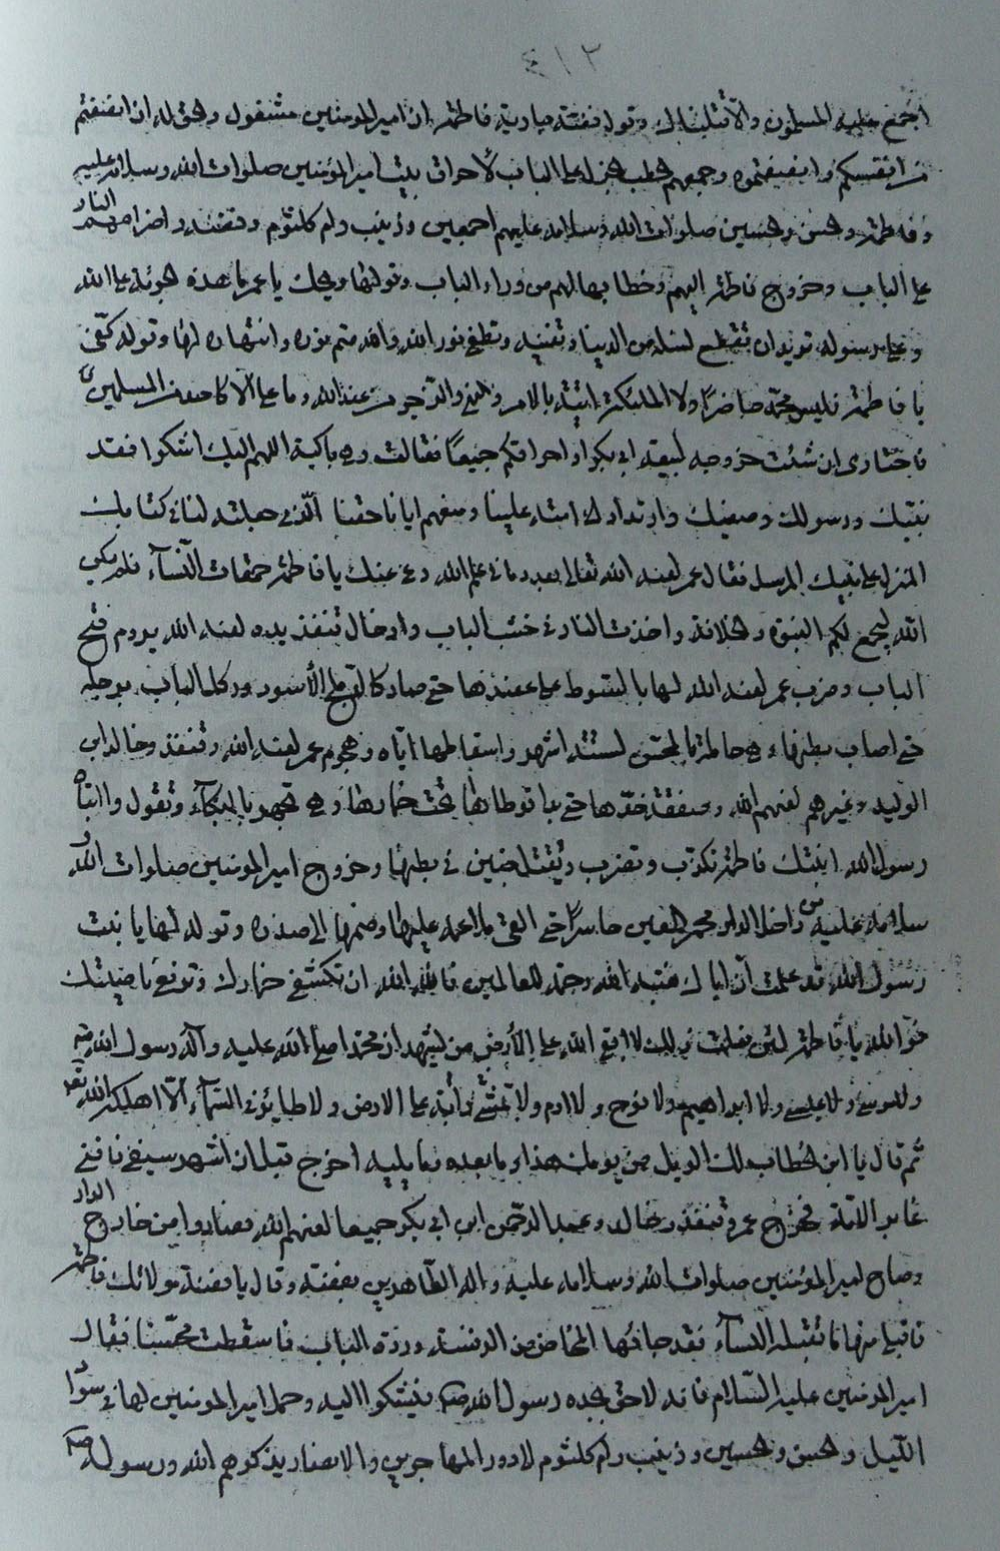 ٤١٢
اجمع عليه المسلمون والا قتلناك وقول فضة جارية فاطمة ان امير المؤمنين مشغول والحق له ان انصفتم
من انفسكم وانصفتموه وجمعهم الحطب الجزل على الباب لاحراق بيت امير المؤمنين صلوات الله وسلامه عليه
وفاطمة والحسن والحسين صلوات الله وسلامه عليهم اجمعين وزينب وام كلثوم وفضة واضرامهم النار
على الباب وخروج فاطمة اليهم وخطابها لهم من وراء الباب وقولها ويحك يا عمر ما هذه الجرئة على الله
وعلى رسوله تريد ان تقطع نسله من الدنيا وتفنيه وتطفئ نور الله والله متم نوره وانتهاره لها وقوله كفي
يا فاطمة فليس محمد حاضرا ولا الملئكة اتية بالامر والنهي والزجر من عند الله وما علي الا كاحد من المسلمين
فاختاري ان شئت خروجه لبيعة ابي بكر او احراقكم جميعا فقالت وهي باكية اللهم اليك اشكوا فقد
نبيك ورسولك وصفيك وارتداد امته علينا ومنعهم ايانا حقنا الذي جعلته لنا في كتابك
المنزل على نبيك المرسل فقال عمر لعنه الله تعالى بعدد ما في علم الله دعي عنك يا فاطمة حمقات النساء فلم يكن
الله ليجمع لكم النبوة والخلافة واخذت النار في خشب الباب وادخال قنفذ يده لعنه الله يروم فتح
الباب وضرب عمر لعنه الله لها بالسوط على عضدها حتى صار كالدملج الأسود وركل الباب برجله
حتى اصاب بطنها وهي حاملة بالمحسن لستة اشهر واسقاطها اياه وهجوم عمر لعنه الله وقنفذ وخالد ابن
الوليد وغيرهم لعنهم الله وصفقة خدها حتى بدا قرطاها تحت خمارها وهي تجهر بالبكاء وتقول وا ابتاه
رسول الله ابنتك فاطمة تكذب وتضرب ويقتل جنين في بطنها وخروج امير المؤمنين صلوات الله و
سلامه عليه من داخل الدار محمر العين حاسرا حتى القى ملاءته عليها وضمها الى صدره وقوله لها يا بنت
رسول الله قد علمت ان اباك بعثه الله رحمة للعالمين فالله الله ان تكشفي خمارك وترفعي ناصيتك
فوالله يا فاطمة لئن فعلت ذلك لا ابقى الله على الأرض من يشهد ان محمدا صلى الله عليه وآله رسول الله
ولا موسى ولا عيسى ولا ابراهيم ولا نوح ولا ادم ولا تمشي دابة على الارض ولا طايرا في السماء الا اهلكه الله تعه
ثم قال يا ابن الخطاب لك الويل من يومك هذا وما بعده وما يليه اخرج قبل ان اشهر سيفي فافني
غابر الامة فخرج عمر وقنفذ وخالد وعبد الرحمن ابن ابي بكر جميعا لعنهم الله فصاروا من خارج الدار
وصاح امير المؤمنين صلوات الله وسلامه عليه واله الطاهرين بفضة وقال يا فضة مولاتك فاطمة
فاقبلي منها ما تقبله النساء فقد جائها المخاض من الرفسة ورد الباب فاسقطت محسنا فقال
امير المؤمنين عليه السلام فانه لاحق بجده رسول الله صلى فيشكوا اليه وحمل امير المؤمنين لها في سواد
الليل والحسن والحسين وزينب وام كلثوم لا دور المهاجرين والانصار يذكرهم الله ورسوله